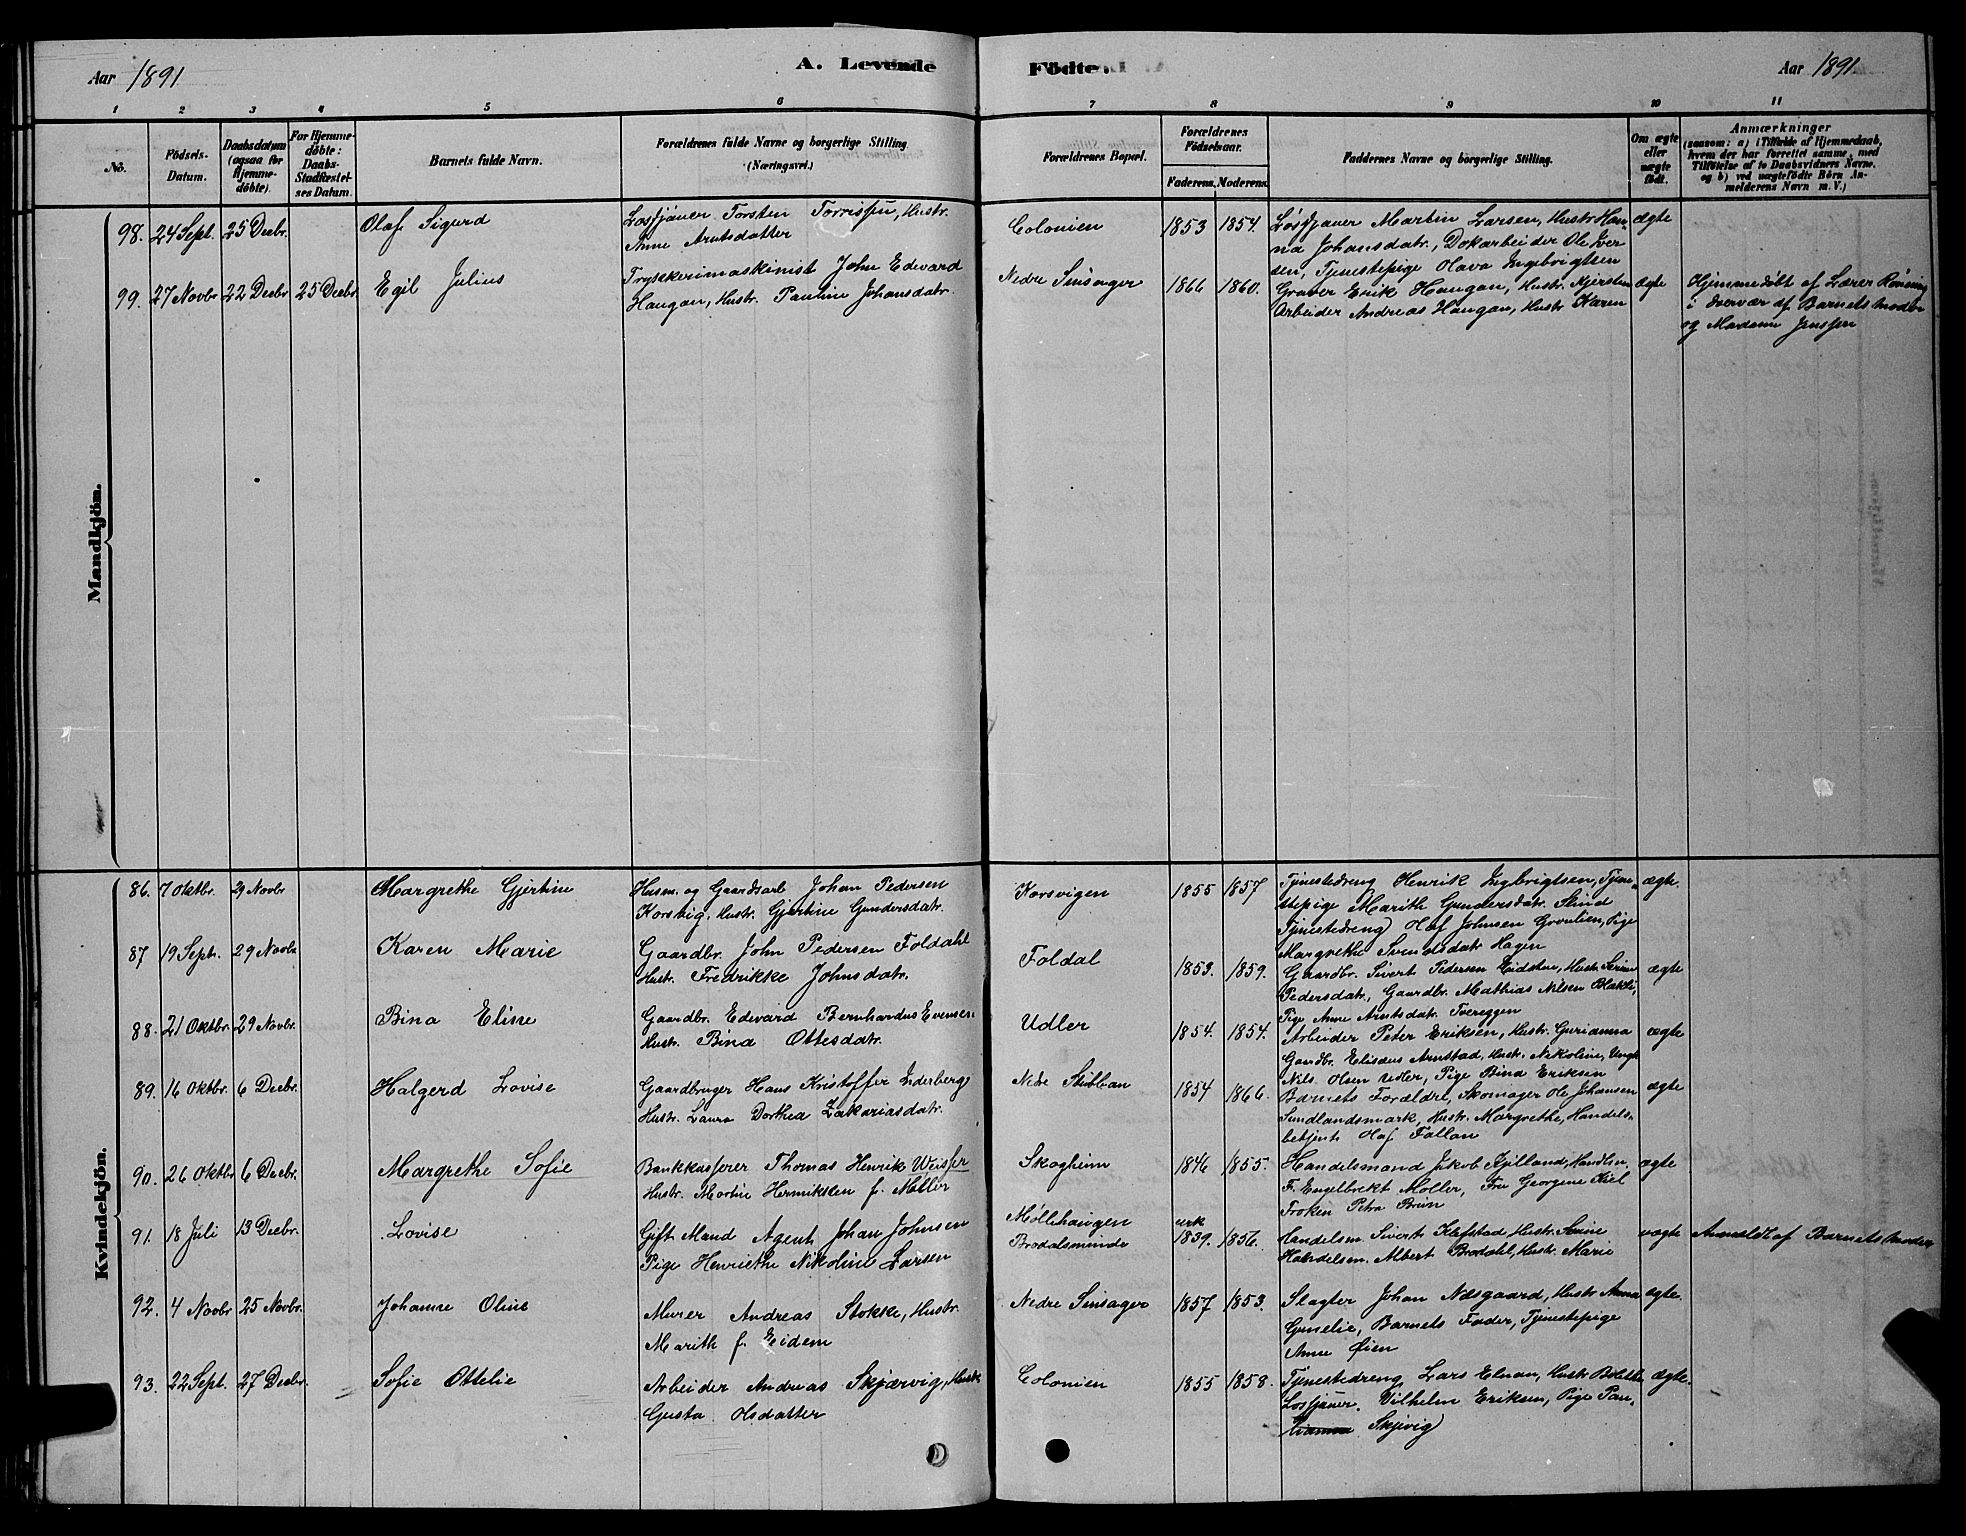 Aar 1891
A. Levende
Födte.
Aar 1891
1 2 3 4 5 6 7 8 9 10 11
No.
Födsels-Datum.
Daabsdatum (ogsaa for Hjemme-döbte).
For Hjemme-döbte: Daabs-Stadfæstel-ses Datum.
Barnets fulde Navn.
Forældrenes fulde Navne og borgerlige Stilling. (Næringsvei.)
Forældrenes Bopæl.
Forældrenes Födselsaar.
Faderens. Moderens.
Faddernes Navne og borgerlige Stilling.
Om ægte eller uægte födt.
Anmærkninger
(saasom: a) i Tilfælde af Hjemmedaab,
hvem der har forrettet samme, med
Tilföielse af to Daabsvidners Navne.
og b) ved uægtefödte Börn An-
melderens Navn m. V.)
Mandkjön.
98. 24 Sept. 25 Decbr. Olaf Sigurd
Losfjauer Torsten Torrissen, Hustr.
Anne Arntsdatter
Colonien 1853 1854.
Løsfjauer Martin Larsen, Hustr Han-
na Johansdatr., Dokarbeider Ole Iver
sen, Tjenestepige Olava Ingebrigtsen
ægte
99. 27 Novbr 22 Decbr 25 Decbr. Egil Julius
Trykkerimaskinist John Edvard
Haugan, Hustr. Pauline Johansdatr.
Nedre Singsager 1866 1860.
Graver Erik Haugan, Hustr. Kjersten
Arbeider Andreas Haugan, Hustr Karen
ægte
Hjemmedøbt af Lærer Rønning
i Overvær af Barnets Moder
og Madame Jenssen
Kvindekjön.
86. 7 Oktbr. 29 Novbr Margrethe Gjertine
Husm. og Gaardsarb Johan Pedersen
Korsvig, Hustr. Gjertine Gundersdatr.
Korsvigen 1855 1857
Tjenestedreng Henrik Ingbrigtsen, Tjen-
stepige Marith Gundersdatr. Stind
Tjenestedreng Olaf Johnsen Grovlien, Pige
Margrethe Svendsdatr Hagen
ægte.
87 19 Sept. 29 Novbr Karen Marie
Gaardbr. John Pedersen Foldahl
Hustr. Fredrikke Johnsdatr.
Foldal 1853. 1859.
Gaardbr. Sivert Pedersen Eidstu, Hustr Serine
Pedersdatr, Gaardbr. Mathias Nilsen Blakli,
Pige Anne Arntsdatr. Tvereggen
ægte
88. 21 Oktbr. 29 Novbr. Bina Eline
Gaardbr. Edvard Bernhardus Evensen.
Hustr. Bina Ottesdatr.
Udler 1854. 1854.
Arbeider Peter Eriksen, Hustr. Gurianna
Gaardbr. Elisæus Arnstad, Hustr. Nikoline, Ungk
Nils Olsen Udler, Pige Bina Eriksen
ægte
89. 16 Oktbr. 6 Decbr. Halgerd Lovise
Gaardbruger Hans Kristoffer Inderberg
Hustr. Laura Dorthea Zakariasdatr.
Nedre Stubban 1854 1866.
Barnets Forældre, Skomager Ole Johansen
Sundlandsmark, Hustr. Margrethe, Handels-
betjent Olaf Fallan
ægte
90. 26 Oktbr 6 Decbr. Margrethe Sofie
Bankkasserer Thomas Henrik Weisser
Hustr. Martine Henriksen f. Møller
Skogheim 1846 1855.
Handelsmand Jakob Kjelland, Handlsm.
F. Engelbrekt Møller, Fru Georgine Kiel
Frøken Petra Bruun
ægte
91. 18 Juli 13 Decbr. Lovise
Gift Mand Agent Johan Johnsen
Pige Henriethe Nikoline Larsen
Møllehaugen
Brodalsminde
cirk
1839. 1856.
Handelsm. Sivert Klefstad, Hustr. Serine
Handelsm. Albert Brodahl, Hustr. Marie
uægte
Anmeldt af Barnets Moder
92. 4 Novbr 25 Novbr. Johanne Oline
Murer Andreas Stokke, Hustr.
Marith f. Eidem
Nedre Singsager 1857 1853.
Slagter Johan Næsgaard, Hustr Anna
Gunelie, Barnets Fader, Tjenestepige
Anne Øien
ægte.
93. 22 Sept. 27 Decbr. Sofie Ottelie
Arbeider Andreas Skjærvig, Hustr
Gusta Olsdatter
Colonien 1855 1858.
Tjenestedreng Lars Elnan, Hustr Bolette
Losfjauer. Vilhelm Eriksen, Pige Pau-
Skjevig
ægte.